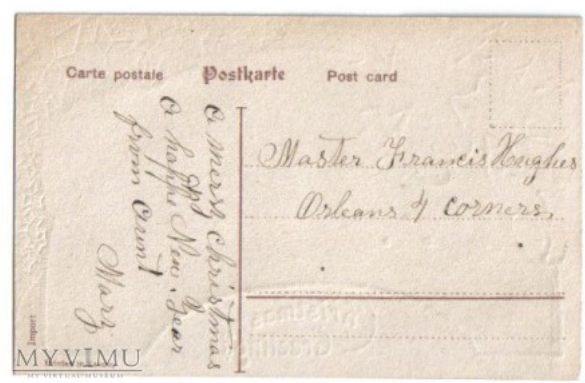 Carte postale Postkarte Post card
a merry christmas
and
a happe New Year
from Aunt
Mary
Master Francis Hughes
Orleans 4 corners,
Import
Christmas
Greeting
MYVIMU
MY VIRTUAL MUSEUM